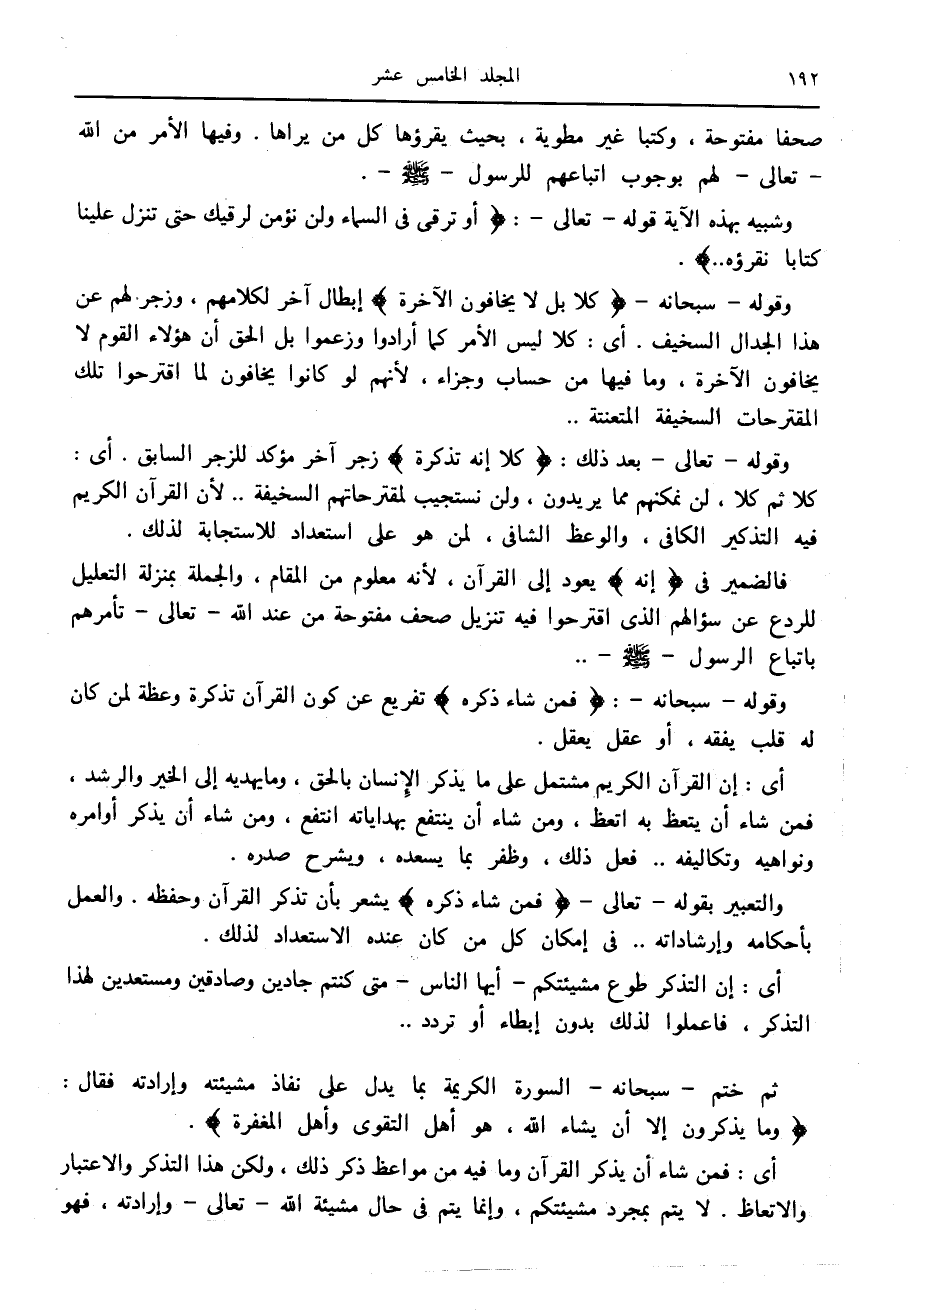 ١٩٢
المجلد الخامس عشر
صحفا مفتوحة ، وكتبا غير مطوية ، بحيث يقرؤها كل من يراها . وفيها الأمر من الله
– تعالى – لهم بوجوب اتباعهم للرسول – ﷺ – .
وشبيه بهذه الآية قوله – تعالى – : ﴿ أو ترقى فى السماء ولن نؤمن لرقيك حتى تنزل علينا
كتابا نقرؤه..﴾ .
وقوله – سبحانه – ﴿ كلا بل لا يخافون الآخرة ﴾ إبطال آخر لكلامهم ، وزجر لهم عن
هذا الجدال السخيف . أى : كلا ليس الأمر كما أرادوا وزعموا بل الحق أن هؤلاء القوم لا
يخافون الآخرة ، وما فيها من حساب وجزاء ، لأنهم لو كانوا يخافون لما اقترحوا تلك
المقترحات السخيفة المتعنتة ..
وقوله – تعالى – بعد ذلك : ﴿ كلا إنه تذكرة ﴾ زجر آخر مؤكد للزجر السابق . أى :
كلا ثم كلا ، لن نمكنهم مما يريدون ، ولن نستجيب لمقترحاتهم السخيفة .. لأن القرآن الكريم
فيه التذكير الكافى ، والوعظ الشافى ، لمن هو على استعداد للاستجابة لذلك .
فالضمير فى ﴿ إنه ﴾ يعود إلى القرآن ، لأنه معلوم من المقام ، والجملة بمنزلة التعليل
للردع عن سؤالهم الذى اقترحوا فيه تنزيل صحف مفتوحة من عند الله – تعالى – تأمرهم
باتباع الرسول – ﷺ – ..
وقوله – سبحانه – : ﴿ فمن شاء ذكره ﴾ تفريع عن كون القرآن تذكرة وعظة لمن كان
له قلب يفقه ، أو عقل يعقل .
أى : إن القرآن الكريم مشتمل على ما يذكر الإنسان بالحق ، ومايهديه إلى الخير والرشد ،
فمن شاء أن يتعظ به اتعظ ، ومن شاء أن ينتفع بهداياته انتفع ، ومن شاء أن يذكر أوامره
ونواهيه وتكاليفه .. فعل ذلك ، وظفر بما يسعده ، ويشرح صدره .
والتعبير بقوله – تعالى – ﴿ فمن شاء ذكره ﴾ يشعر بأن تذكر القرآن وحفظه . والعمل
بأحكامه وإرشاداته .. فى إمكان كل من كان عنده الاستعداد لذلك .
أى : إن التذكر طوع مشيئتكم – أيها الناس – متى كنتم جادين وصادقين ومستعدين لهذا
التذكر ، فاعملوا لذلك بدون إبطاء أو تردد ..
ثم ختم – سبحانه – السورة الكريمة بما يدل على نفاذ مشيئته وإرادته فقال :
﴿ وما يذكرون إلا أن يشاء الله ، هو أهل التقوى وأهل المغفرة ﴾ .
أى : فمن شاء أن يذكر القرآن وما فيه من مواعظ ذكر ذلك ، ولكن هذا التذكر والاعتبار
والاتعاظ . لا يتم بمجرد مشيئتكم ، وإنما يتم فى حال مشيئة الله – تعالى – وإرادته ، فهو